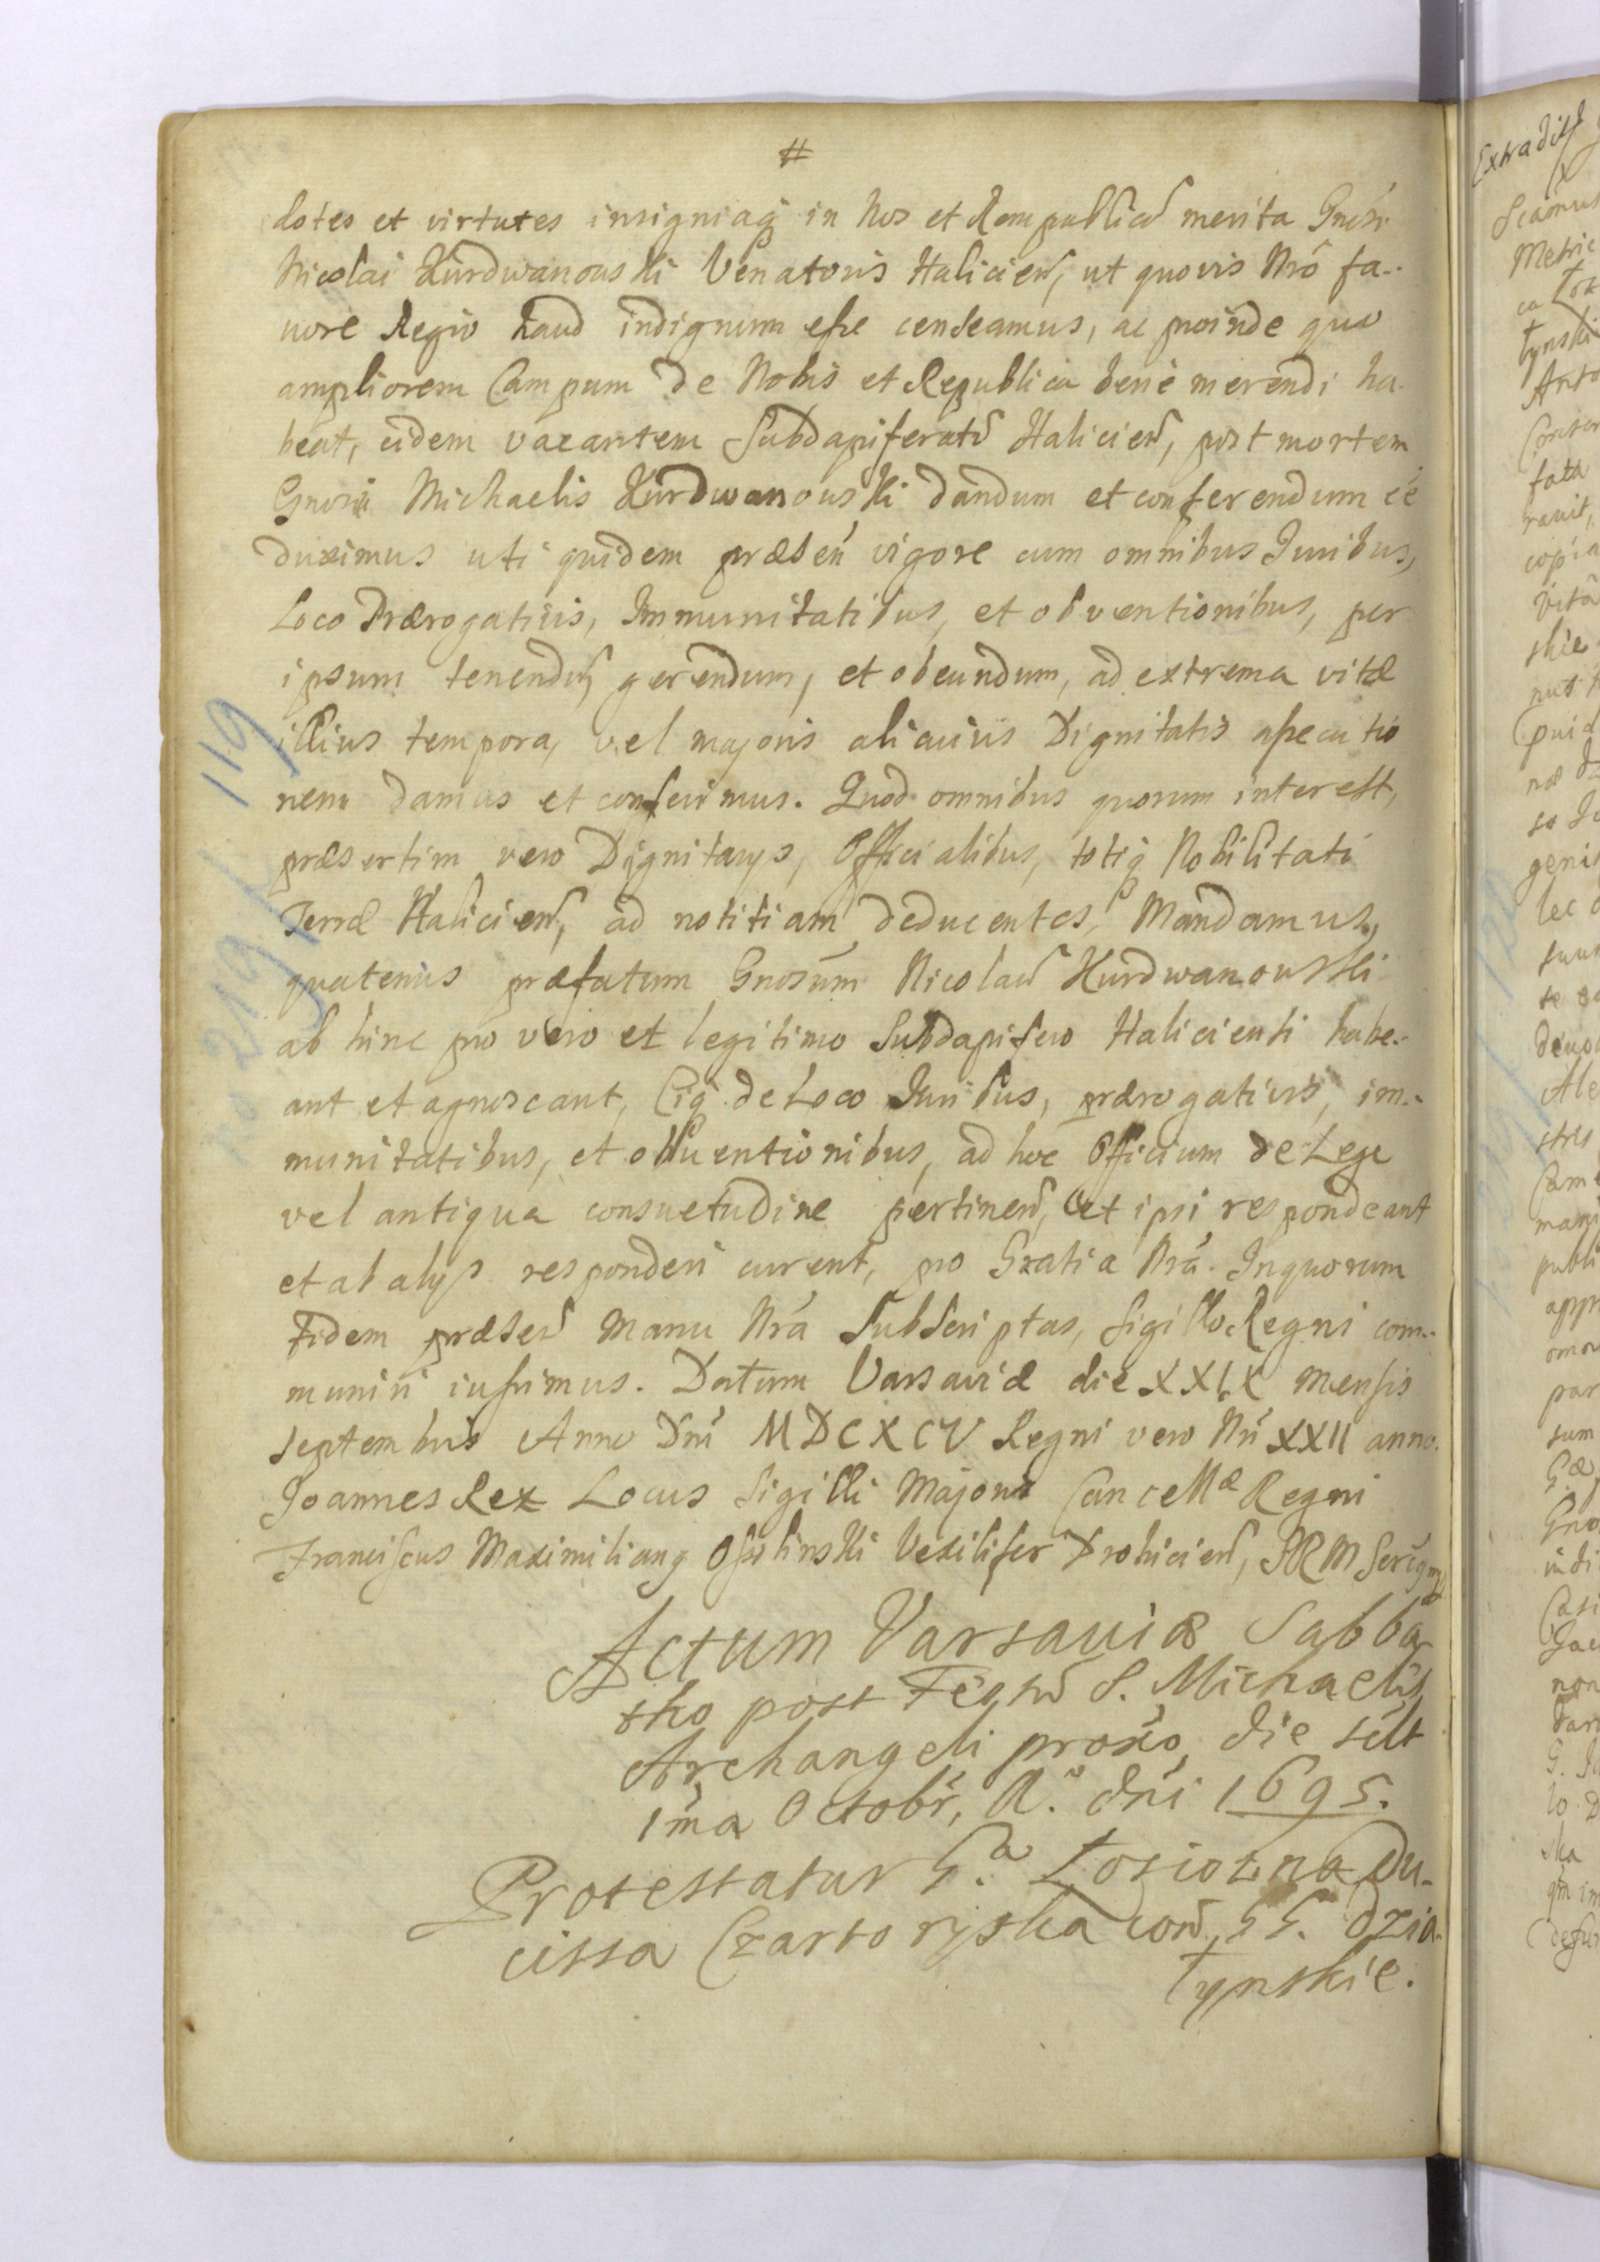 #
dotes et virtutes insigniaq̃ in Nos et Rempublicã merita Gnosi
Nicolai Kurdwanowski Venatoris Halicieñ, ut quovis Nrõ fa-
uore Regio haud indignum eße censeamus, ac proinde quo
ampliorem Campum de Nobis et Republica bene merendi ha-
beat, eidem vacantem Subdapiferatũ Halicieñ, post mortem
Gnosi Michaelis Kurdwanowski dandum et conferendum eẽ
duximus uti quidem præseñ vigore cum omnibus Iuribus,
Loco Prærogativis, Immunitatibus, et obventionibus, per
ipsum tenendũ, gerendum, et obeundum, ad extrema vitæ
illius tempora, vel majoris alicuius Dignitatis aßecutio
nem damus et conferimus. Quod omnibus quorum interest,
præsertim vero Dignitarijs, Officialibus, totiq̃ Nobilitati
Terræ Halicieñ, ad notitiam deducentes, Mandamus,
quatenus præfatum Gnosum Nicolaũ Kurdwanowski
ab hinc pro vero et legitimo Subdapifero Haliciensi habe-
ant et agnoscant, Eiq̃ de Loco Iuribus, prærogativis, im-
munitatibus, et obuentionibus, ad hoc Officium de Lege
vel antiqua consuetudine pertineñ, et ipsi respondeant
et ab alijs responderi curent, pro Gratia Nrã. In quorum
Fidem præseñ Manu Nrã Subscriptas, Sigillo Regni com-
muniri iußimus. Datum Varsaviæ die XXIX Mensis
Septembris Anno Dnĩ MDCXCV Regni vero Nrĩ XXII anno.
Joannes Rex Locus Sigilli Majoris Cancellæ Regni
Franciscus Maximilianq Oßolinski Vexillifer Drohicieñ, SRM
Actum Varsaviæ Sabba
tho post Festũ S. Michaelis
Archangeli proxĩo, die scilt
1ma Octobr, A.º dni 1695.
Protestatur G.ª Łosiowna Du-
cissa Czartoryska con̄, GG. Dzia-
łynskie.
119
219
Extradit